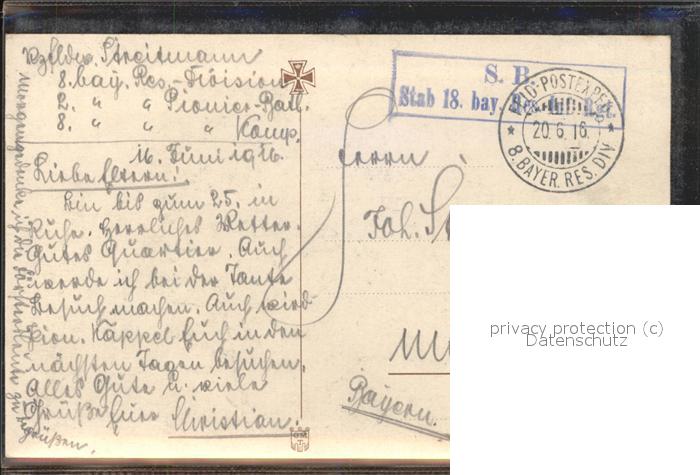 Vzfeldw. Streitmann
8. bay. Res.-Division
2. " " Pionier-Batl.
8. " " " Komp.
16. Juni 1916.
Liebe Eltern!
Bin bis zum 25. in
Ruhe. Herrliches Wetter.
Gutes Quartier. Auch
werde ich bei der Tante
Besuch machen. Auch wird
Pion. Kappel Euch in den
nächsten Tagen besuchen.
Alles Gute u. viele
Grüße Euer Christian.
grüßen.
S. B.
Stab 18. bay. Res. Inf. Rgt.
FELD-POSTEXPED.
20.6.16.
* 8. BAYER. RES. DIV *
Herrn
Joh. St
M
Bayern.
privacy protection (c)
Datenschutz